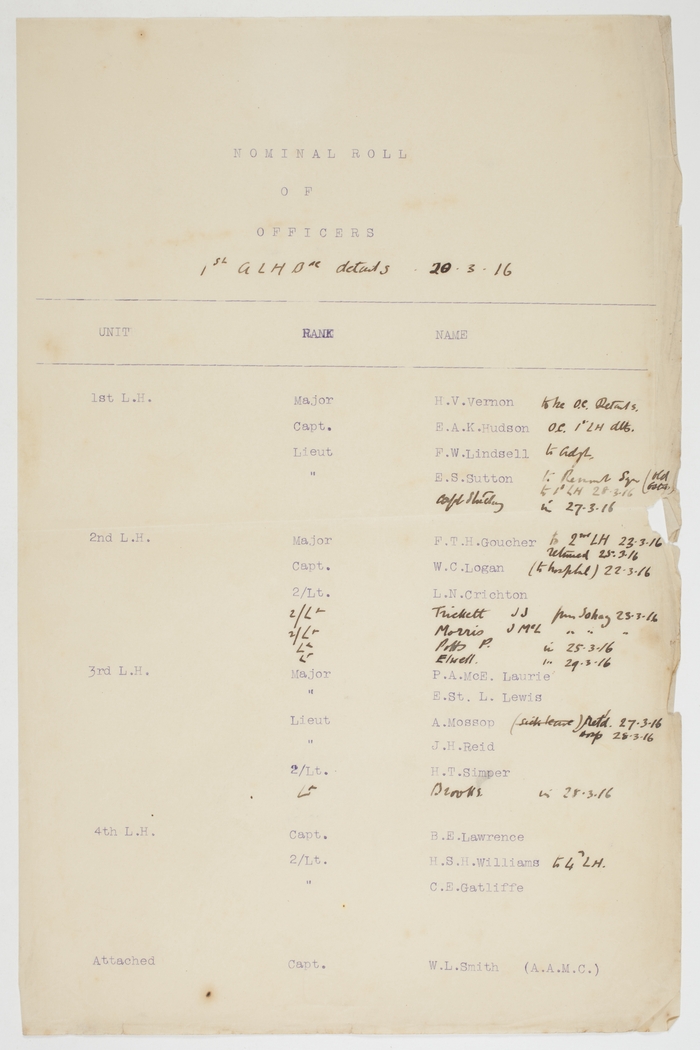 NOMINAL ROLL
OF
OFFICERS
1st A L H Bde details . 20.3.16
UNIT RANK NAME
1st L.H. Major H.V.Vernon to be O.C. Details.
Capt. E.A.K.Hudson O.C. 1st LH dtls.
Lieut F.W.Lindsell to Adjt.
" E.S.Sutton to Remount Sqn
to 1st LH 28-3-16
Capt in 27-3-16
2nd L.H. Major F.T.H.Goucher to 2nd LH 23-3-16
returned 25-3-16
Capt. W.C.Logan (to hospital) 22-3-16
2/Lt. L.N.Crichton
2/Lt Trickett J J from 28-3-16
2/Lt Morris J McL " " "
Lt Potts P. in 25-3-16
Lt Elwell. in 29-3-16
3rd L.H. Major P.A.McE. Laurie
" E.St. L. Lewis
Lieut A.Mossop (sick leave) Retd. 27-3-16
28-3-16
" J.H.Reid
2/Lt. H.T.Simper
Lt Brooks in 28-3-16
4th L.H. Capt. B.E.Lawrence
2/Lt. H.S.H.Williams to 4th LH.
" C.E.Gatliffe
Attached Capt. W.L.Smith (A.A.M.C.)